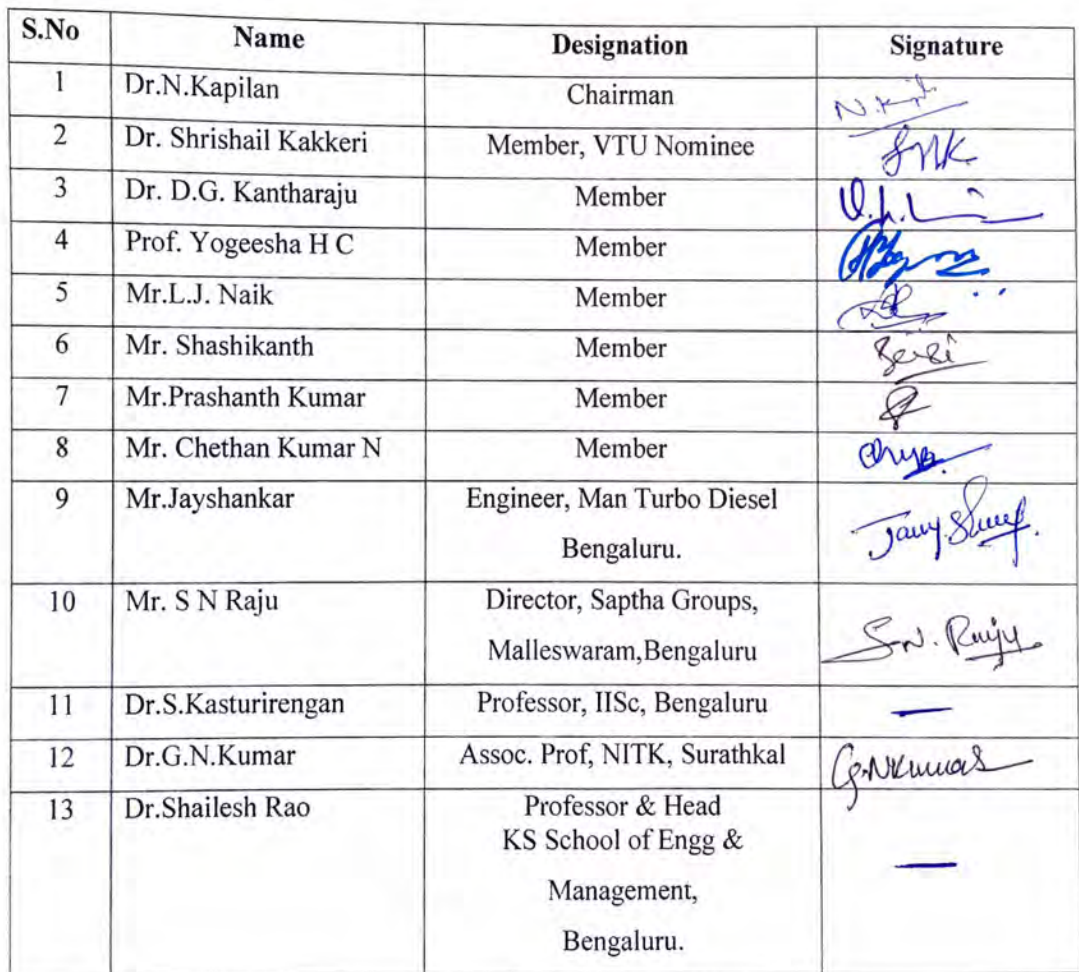 S.No Name Designation Signature
1 Dr.N.Kapilan Chairman
2 Dr. Shrishail Kakkeri Member, VTU Nominee
3 Dr. D.G. Kantharaju Member
4 Prof. Yogeesha H C Member
5 Mr.L.J. Naik Member
6 Mr. Shashikanth Member
7 Mr.Prashanth Kumar Member
8 Mr. Chethan Kumar N Member
9 Mr.Jayshankar Engineer, Man Turbo Diesel
Bengaluru.
10 Mr. S N Raju Director, Saptha Groups,
Malleswaram,Bengaluru S.N. Raju
11 Dr.S.Kasturirengan Professor, IISc, Bengaluru —
12 Dr.G.N.Kumar Assoc. Prof, NITK, Surathkal G.NKumar
13 Dr.Shailesh Rao Professor & Head
KS School of Engg &
Management, —
Bengaluru.